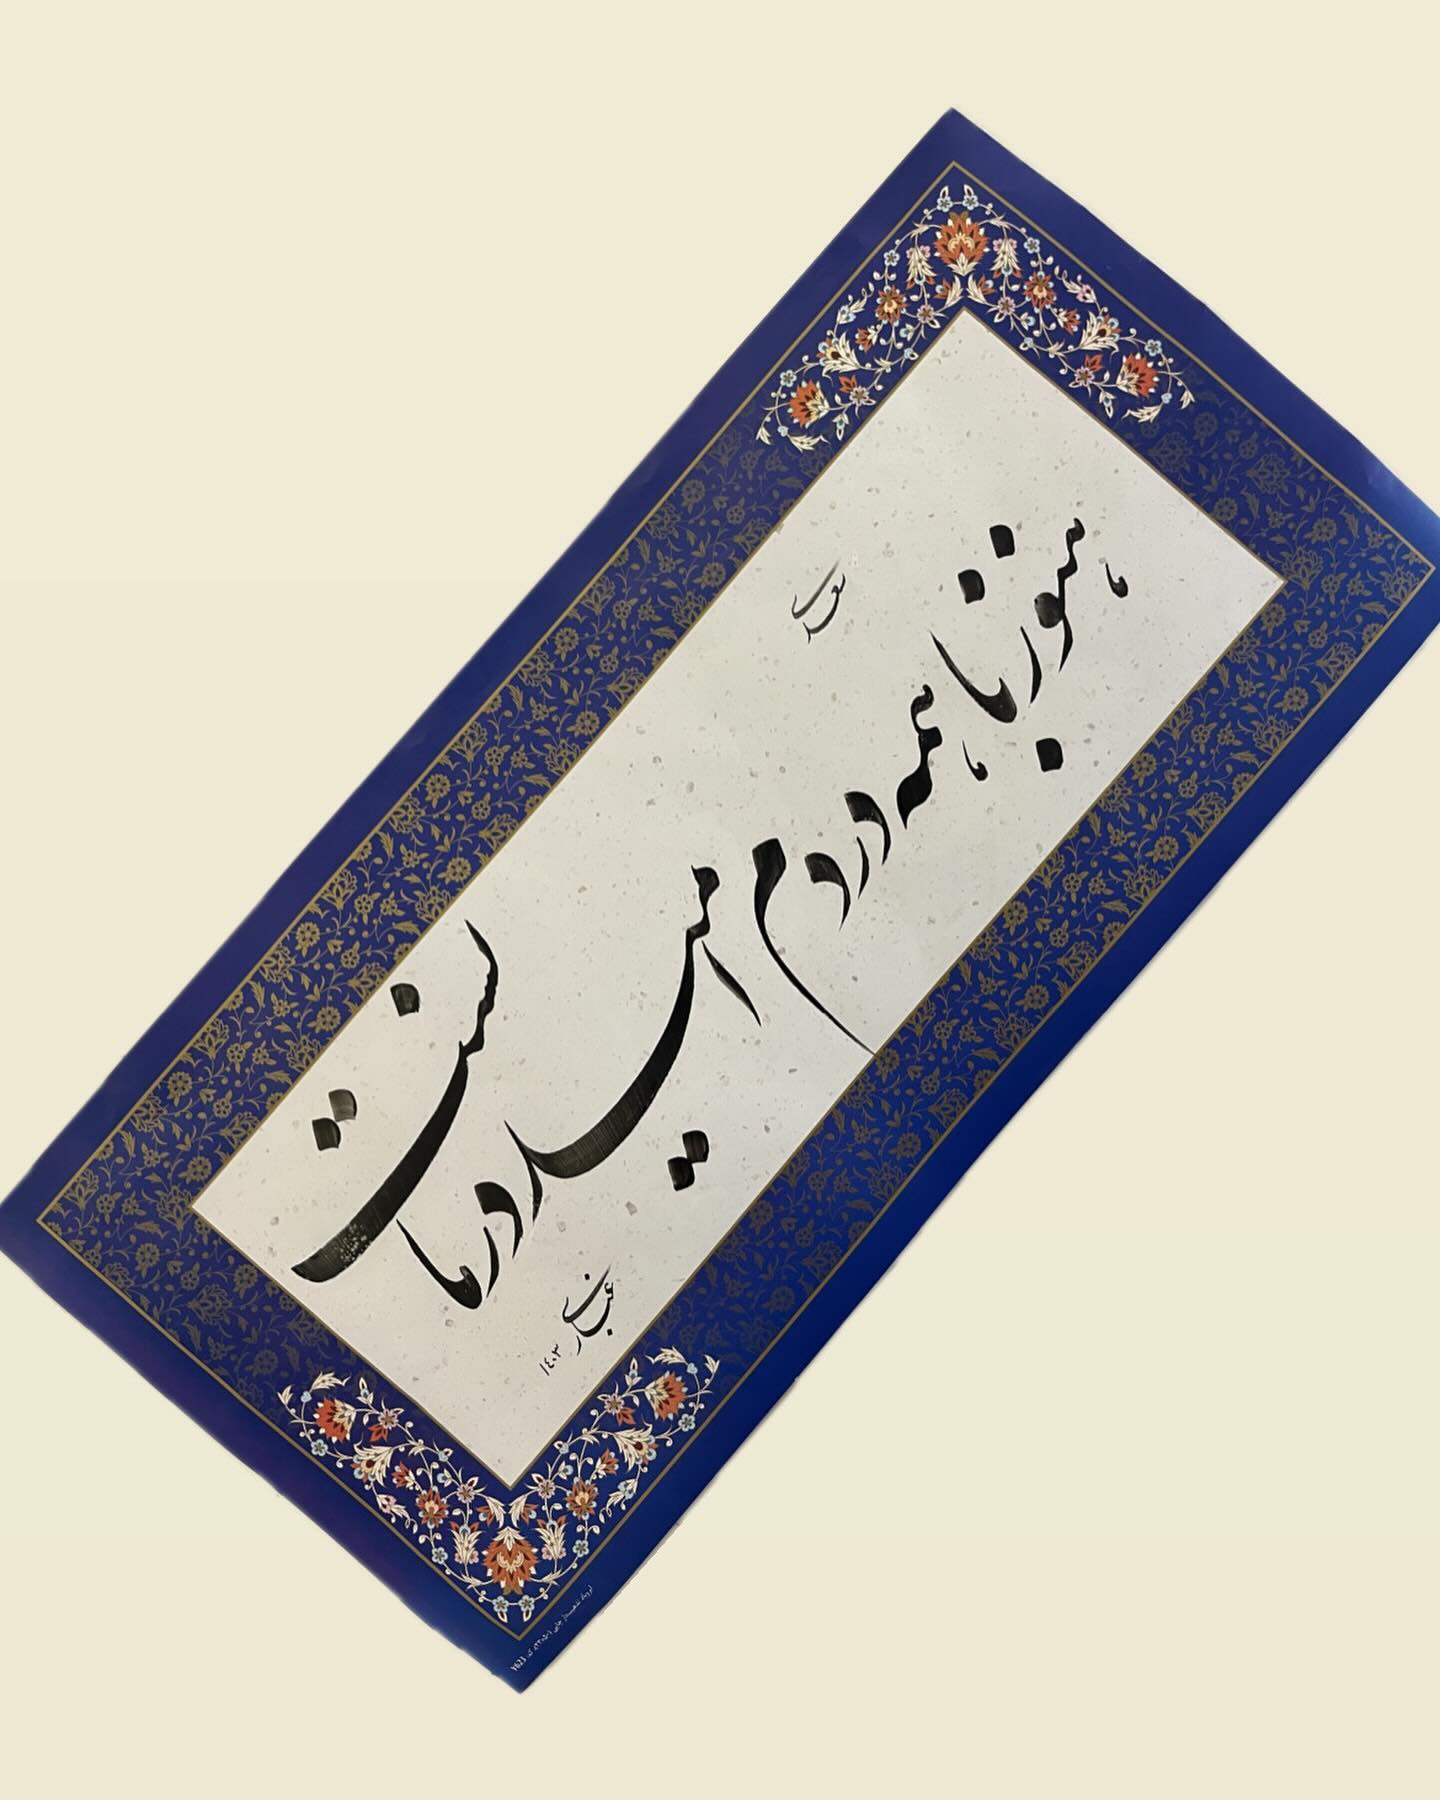 هنوز با همه دردم امید درمانست
سعدی
عبدی
۱۴۰۳